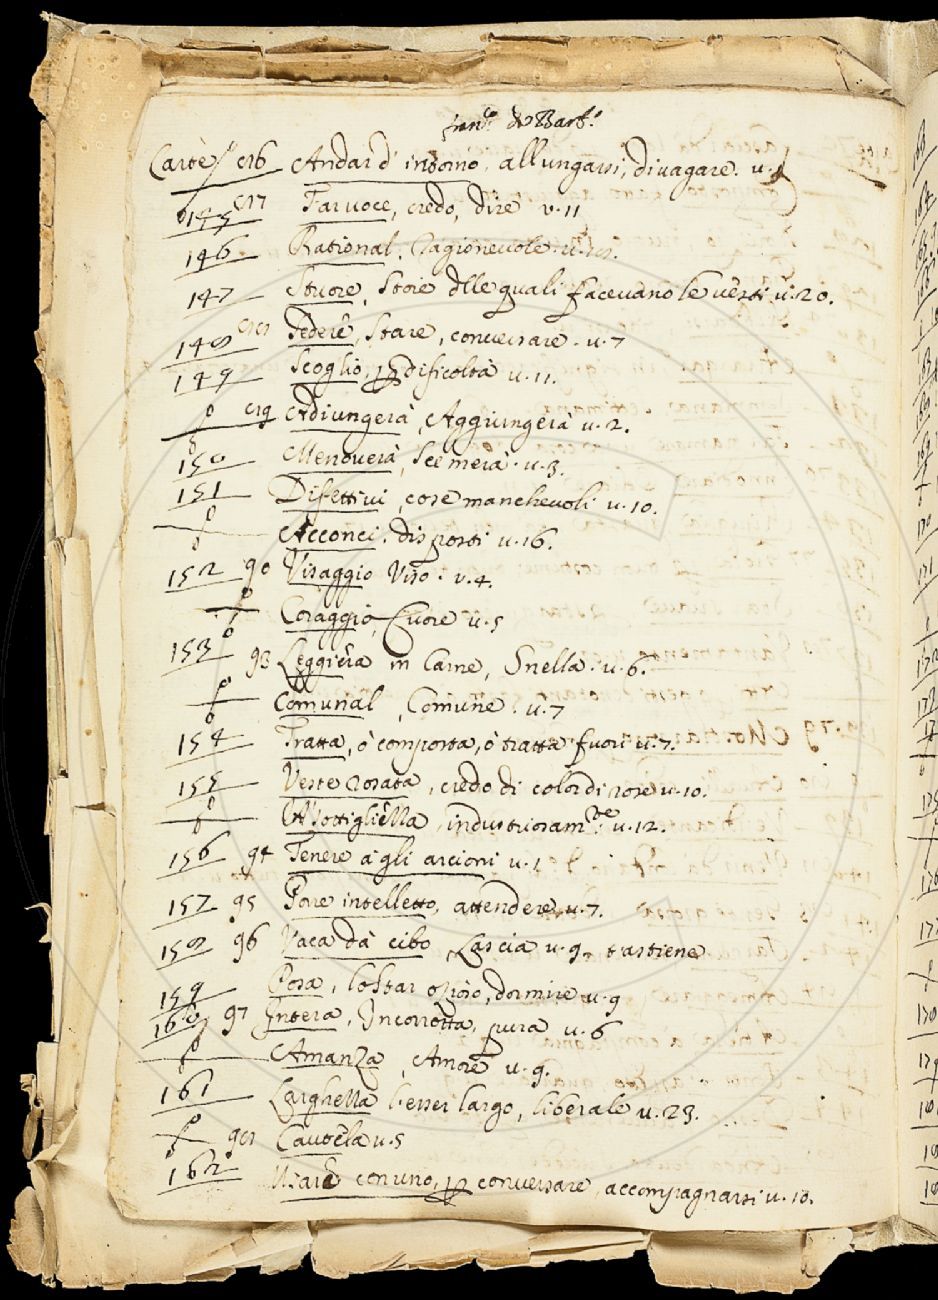 franc.º da Barb.º
Carte/ 86 Andar d'intorno, allungarsi, divagare. u. 1
145 87 Far voce, credo, dire v. 11
146 Rational. Ragionevole. u.
147 Stuore, Stoie dlle quali facevano le vesti u. 20.
148 88 Sedere, Stare, conversare. u. 7
149 Scoglio, p dificoltà u. 11.
89 Adiungerà, Aggiungerà u. 2.
150 Menoverà, Scemerà. u. 3.
151 Difettivi, cose manchevoli u. 10.
Acconci. disposti u. 16.
152 90 Visaggio Viso. v. 4.
Coraggio, Cuore u. 5
153 93 Leggiera in Carne, Snella. u. 6.
Comunal, Comune. u. 7
154 Tratta, ò comporta, ò tratta fuori u. 7.
155 Veste rosata, credo di color di rose u. 10.
Assottigliella, industriosam.te u. 12.
156 94 Tenere à gli arcioni u. 1
157 95 Pone intelletto, attendere u. 7.
158 96 Vaca dà cibo, Lascia u. 9, s'astiene
159 Posa, lo star ozioso, dormire u. 9
160 97 Intera, Incorrotta, pura u. 6
Amanza, Amore u. 9.
161 Larghella l'esser largo, liberale u. 23.
98 Cautela u. 5
162 Usare con uno, p conversare, accompagnarsi u. 10.